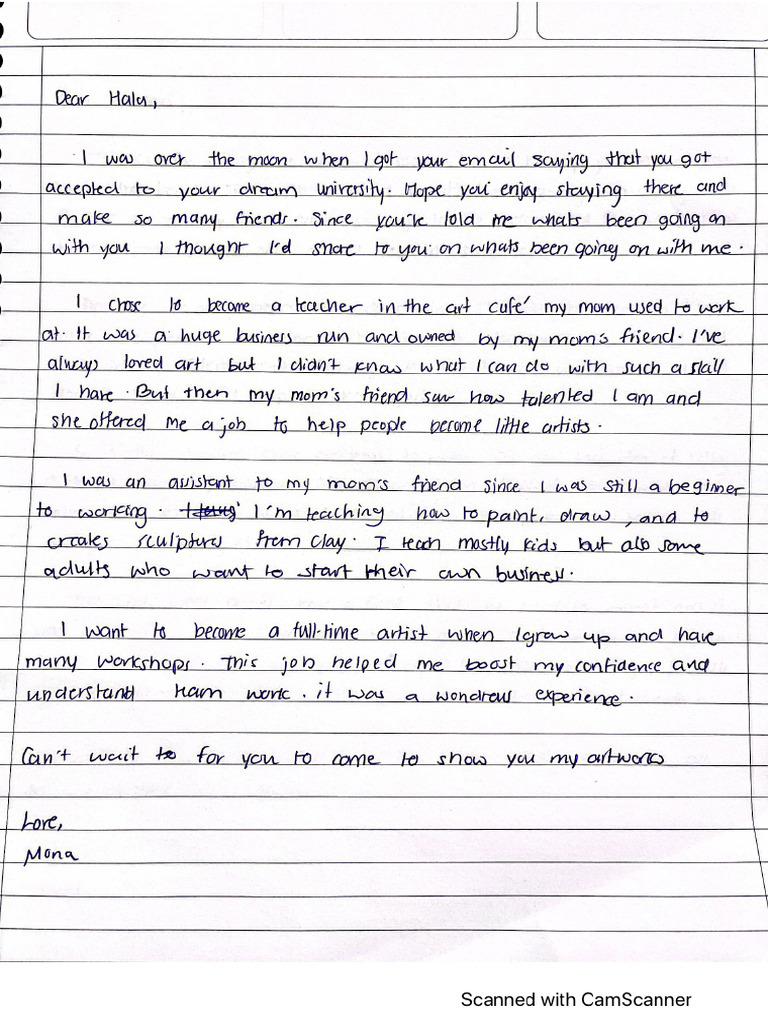 Dear Hala,
I was over the moon when I got your email saying that you got
accepted to your dream university. Hope you enjoy staying there and
make so many friends. Since you've told me whats been going on
with you I thought I'd share to you on whats been going on with me.
I chose to become a teacher in the art cafe' my mom used to work
at. It was a huge business run and owned by my mom's friend. I've
always loved art but I didn't know what I can do with such a skill
I have. But then my mom's friend saw how talented I am and
she offered me a job to help people become little artists.
I was an assistant to my mom's friend since I was still a beginner
to working. I'm teaching how to paint, draw, and to
creates sculptures from clay. I teach mostly kids but also some
adults who want to start their own business.
I want to become a full-time artist when I grow up and have
many workshops. This job helped me boost my confidence and
understand team work. it was a wondrous experience.
Can't wait to for you to come to show you my artworks
Love,
Mona
Scanned with CamScanner